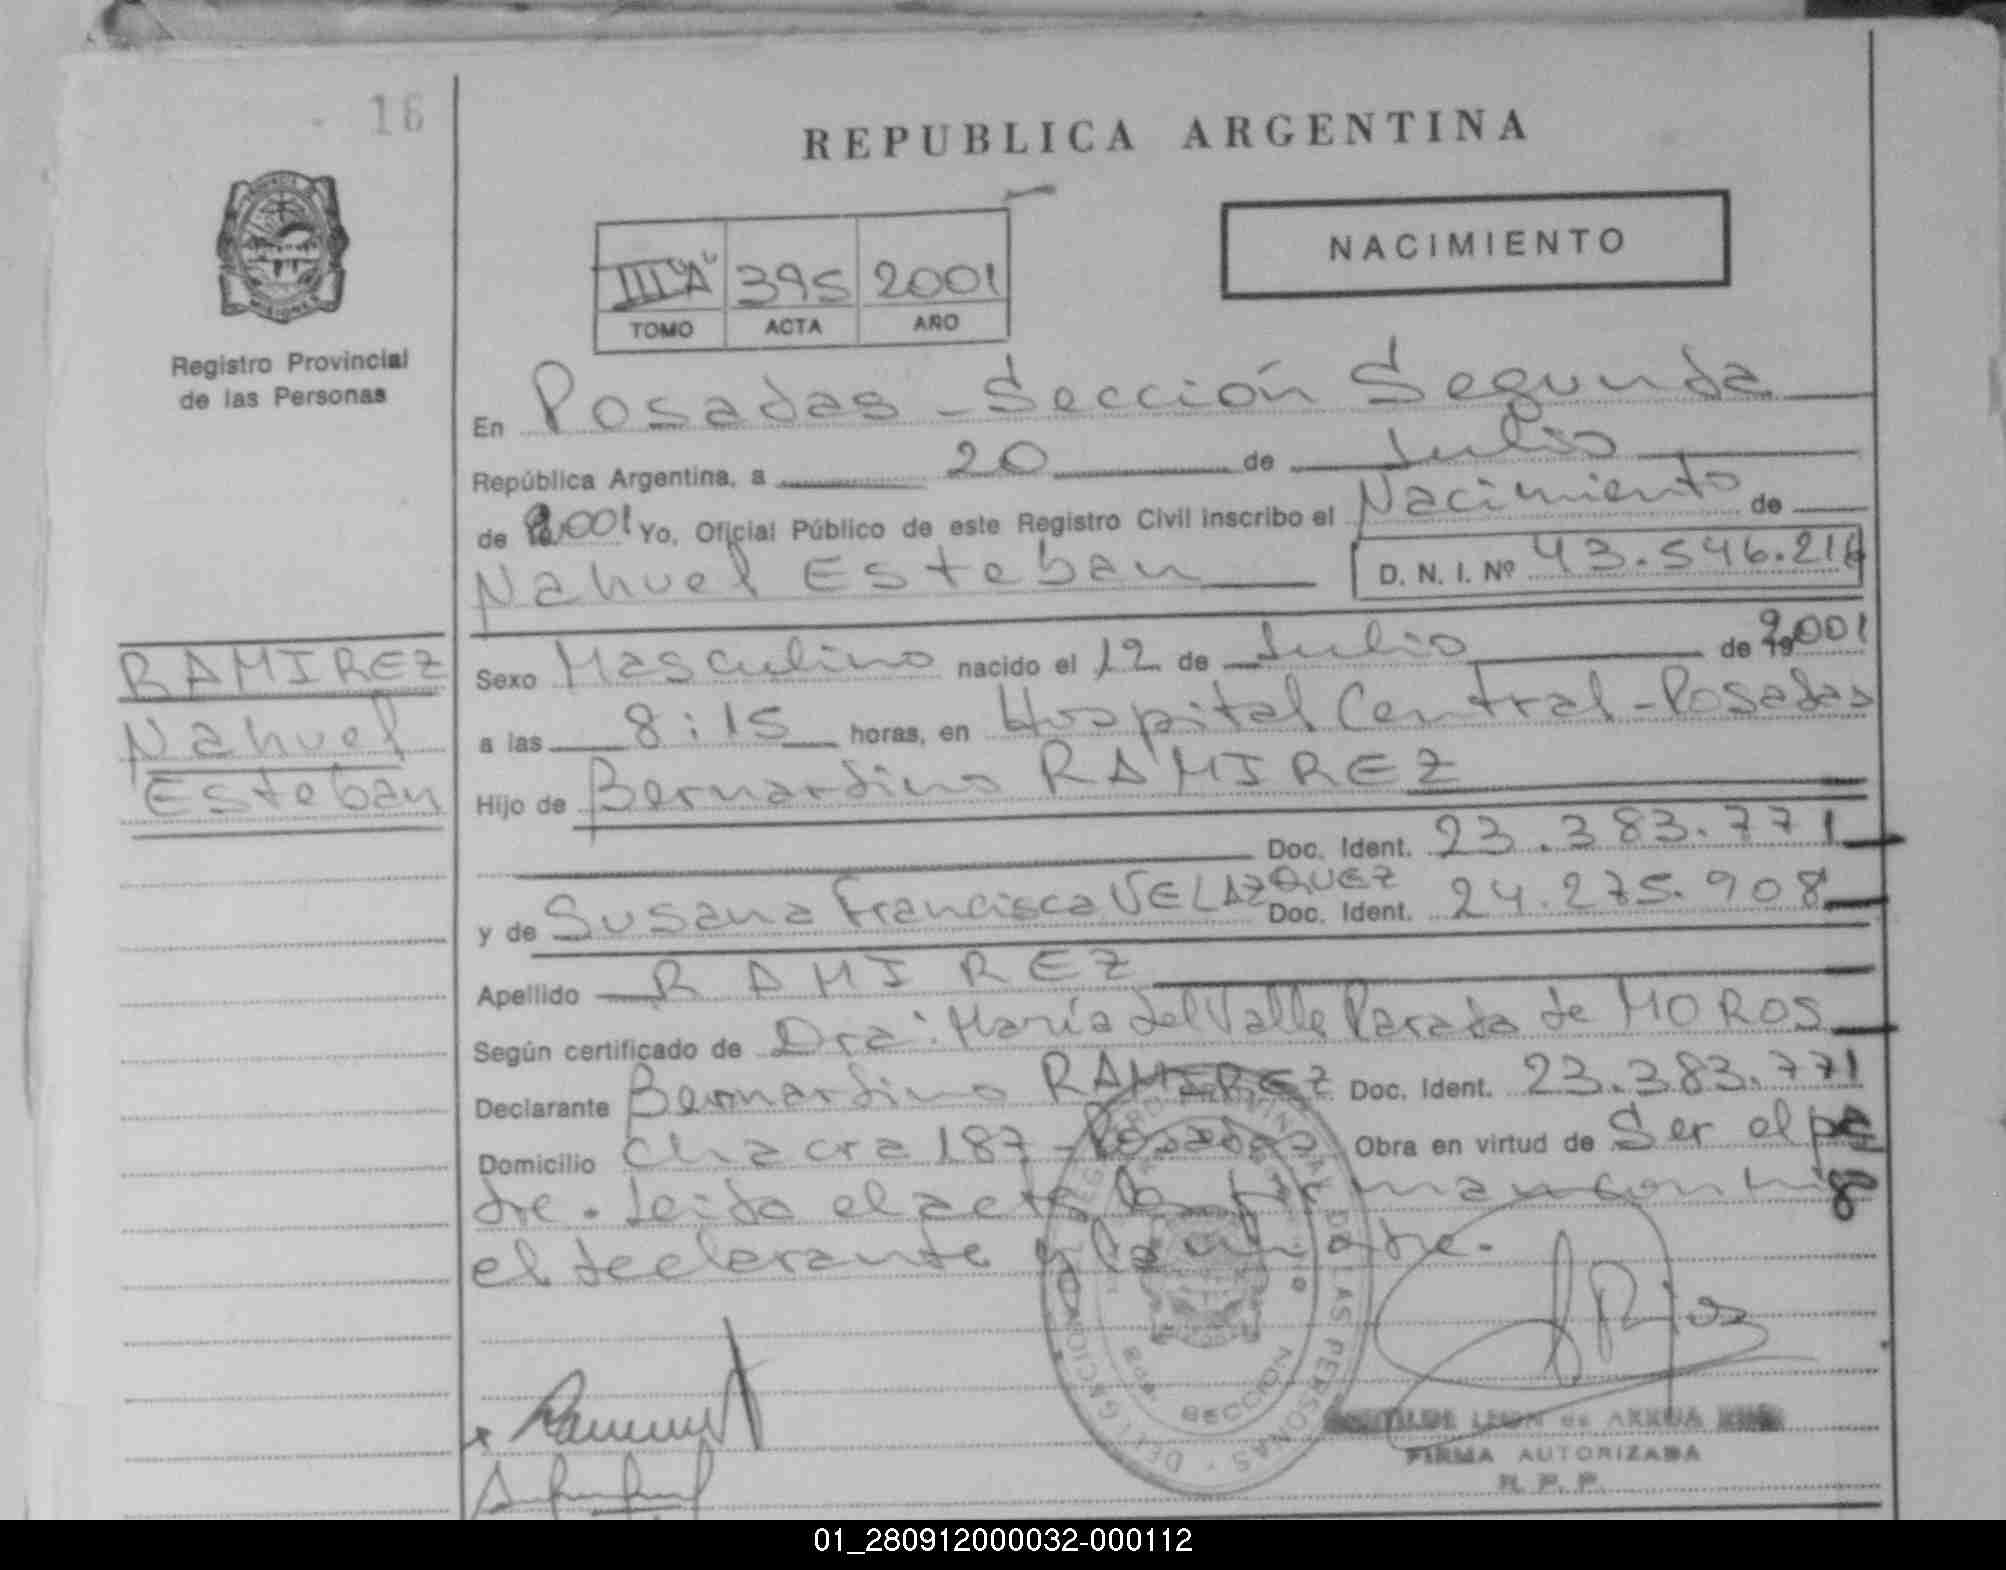 16
REPUBLICA ARGENTINA
NACIMIENTO
III "A" 395 2001
TOMO ACTA AÑO
Registro Provincial
de las Personas
En Posadas - Sección Segunda
República Argentina, a 20 de Julio
de 2001 Yo, Oficial Público de este Registro Civil inscribo el Nacimiento de
Nahuel Esteban D. N. I. Nº 43.546.216
RAMIREZ
Nahuel
Esteban
Sexo Masculino nacido el 12 de Julio de 2001
a las 8:15 horas, en Hospital Central - Posadas
Hijo de Bernardino RAMIREZ
Doc. Ident. 23.383.771
y de Susana Francisca VELAZQUEZ Doc. Ident. 24.275.908
Apellido RAMIREZ
Según certificado de Dra: María del Valle Parada de MOROS
Declarante Bernardino RAMIREZ Doc. Ident. 23.383.771
Domicilio Chacra 187 - Posadas Obra en virtud de Ser el pa
dre. Leida el acta la firman conmigo
el declarante y la madre.
LEON de ARRUA
FIRMA AUTORIZADA
R. P. P.
01_280912000032-000112